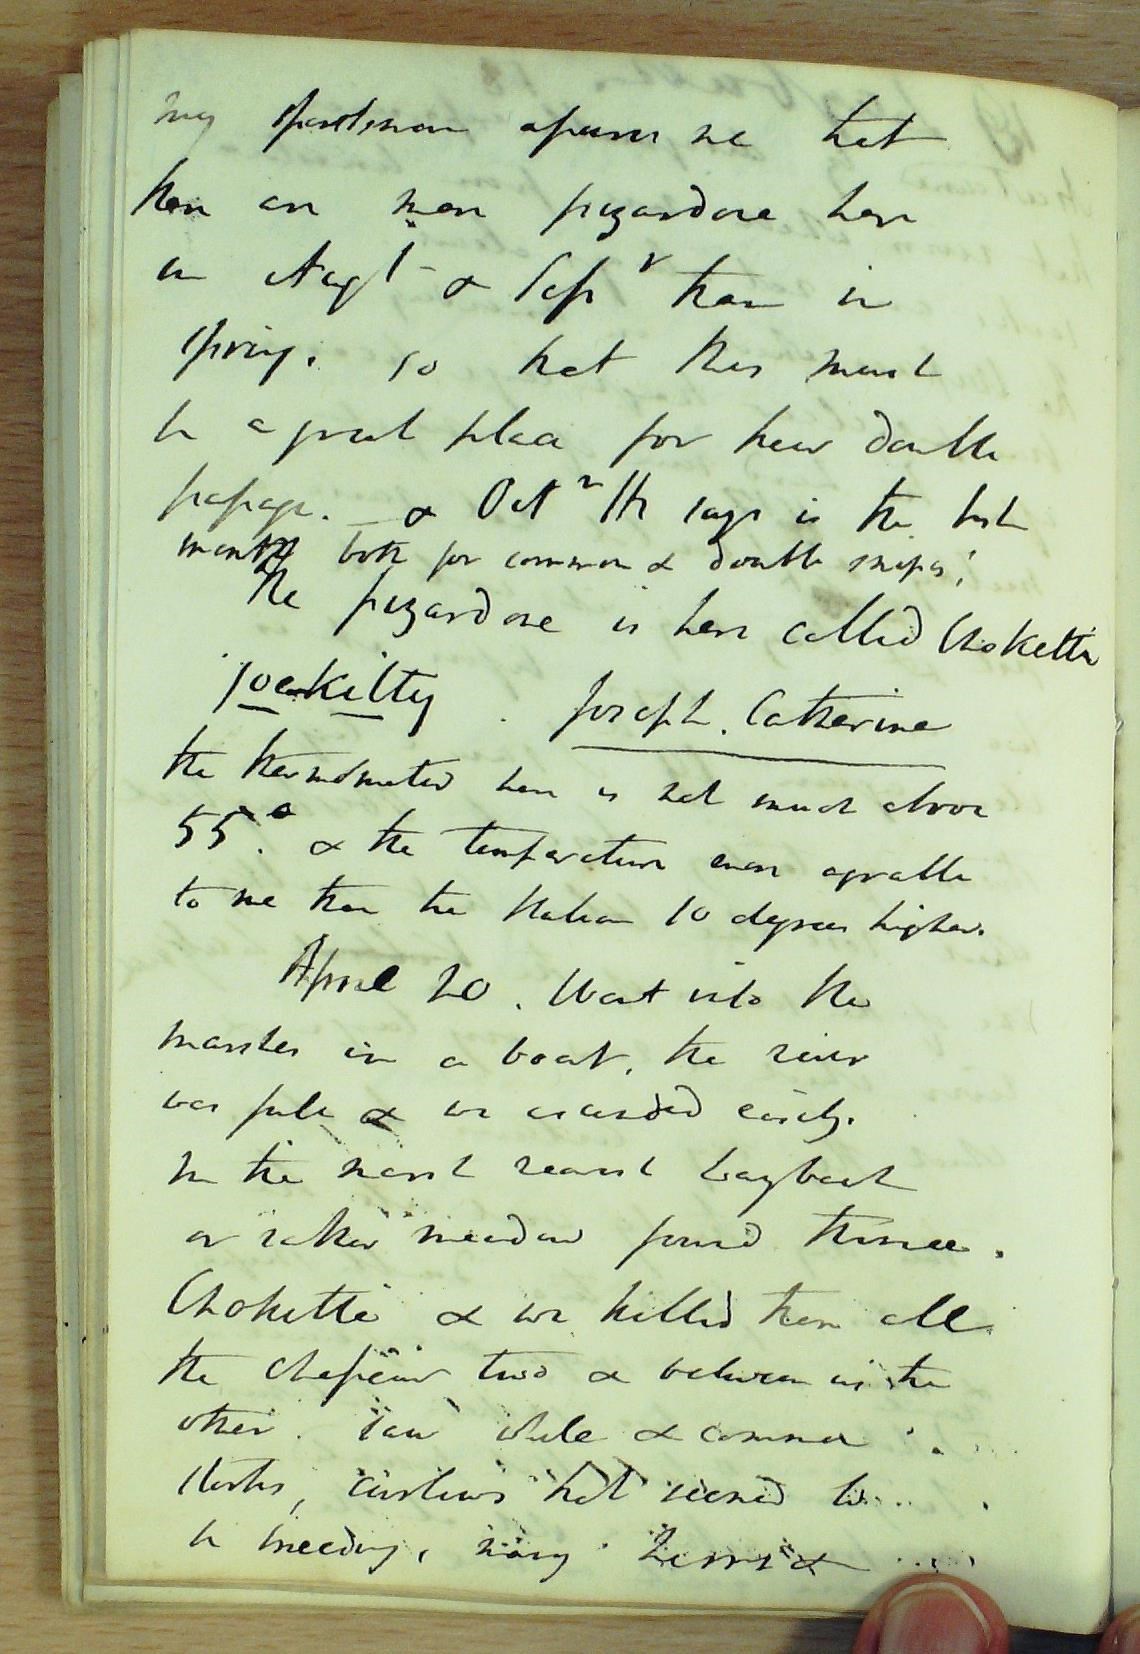 my sportsman assures me that
there are more pizardone here
in Augt & Sepr than in
spring. so that this must
be a great place for their double
passage. & Octr He says is the best
month both for common & double snipes!
The pizardone is here called Choketti
joekitty. Joseph. Catherine
the thermometer here is not much above
55°. & the temperature more agreable
to me than the Italian 10 degrees higher.
April 20. Went into the
marshes in a boat, the river
was full & we ascended easily.
In the marsh nearest Laybach
or rather meadow found three
Choketti & we killed them all
the chasseur two & between us the
other. saw white & common
storks, curlews that seemed to
be breeding, many &